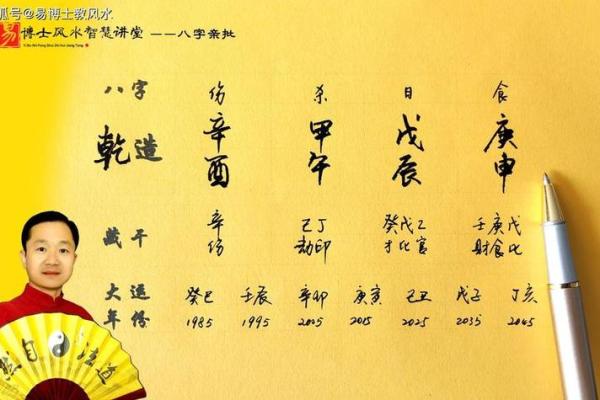 狐号@易博士教风水
易 博士风水智慧讲堂 ——八字亲批
Yi Bo Shi Feng Shui Zhi Hui Jiang Tang
八字 伤 杀 日 食
乾造 辛酉 甲午 戊辰 庚申
藏干 辛 己丁 癸戊乙 壬庚戊
伤 劫印 才比官 财食比
大运 癸巳 壬辰 辛卯 庚寅 己丑 戊子 丁亥
年份 1985 1995 2005 2015 2025 2035 2045
自 法道